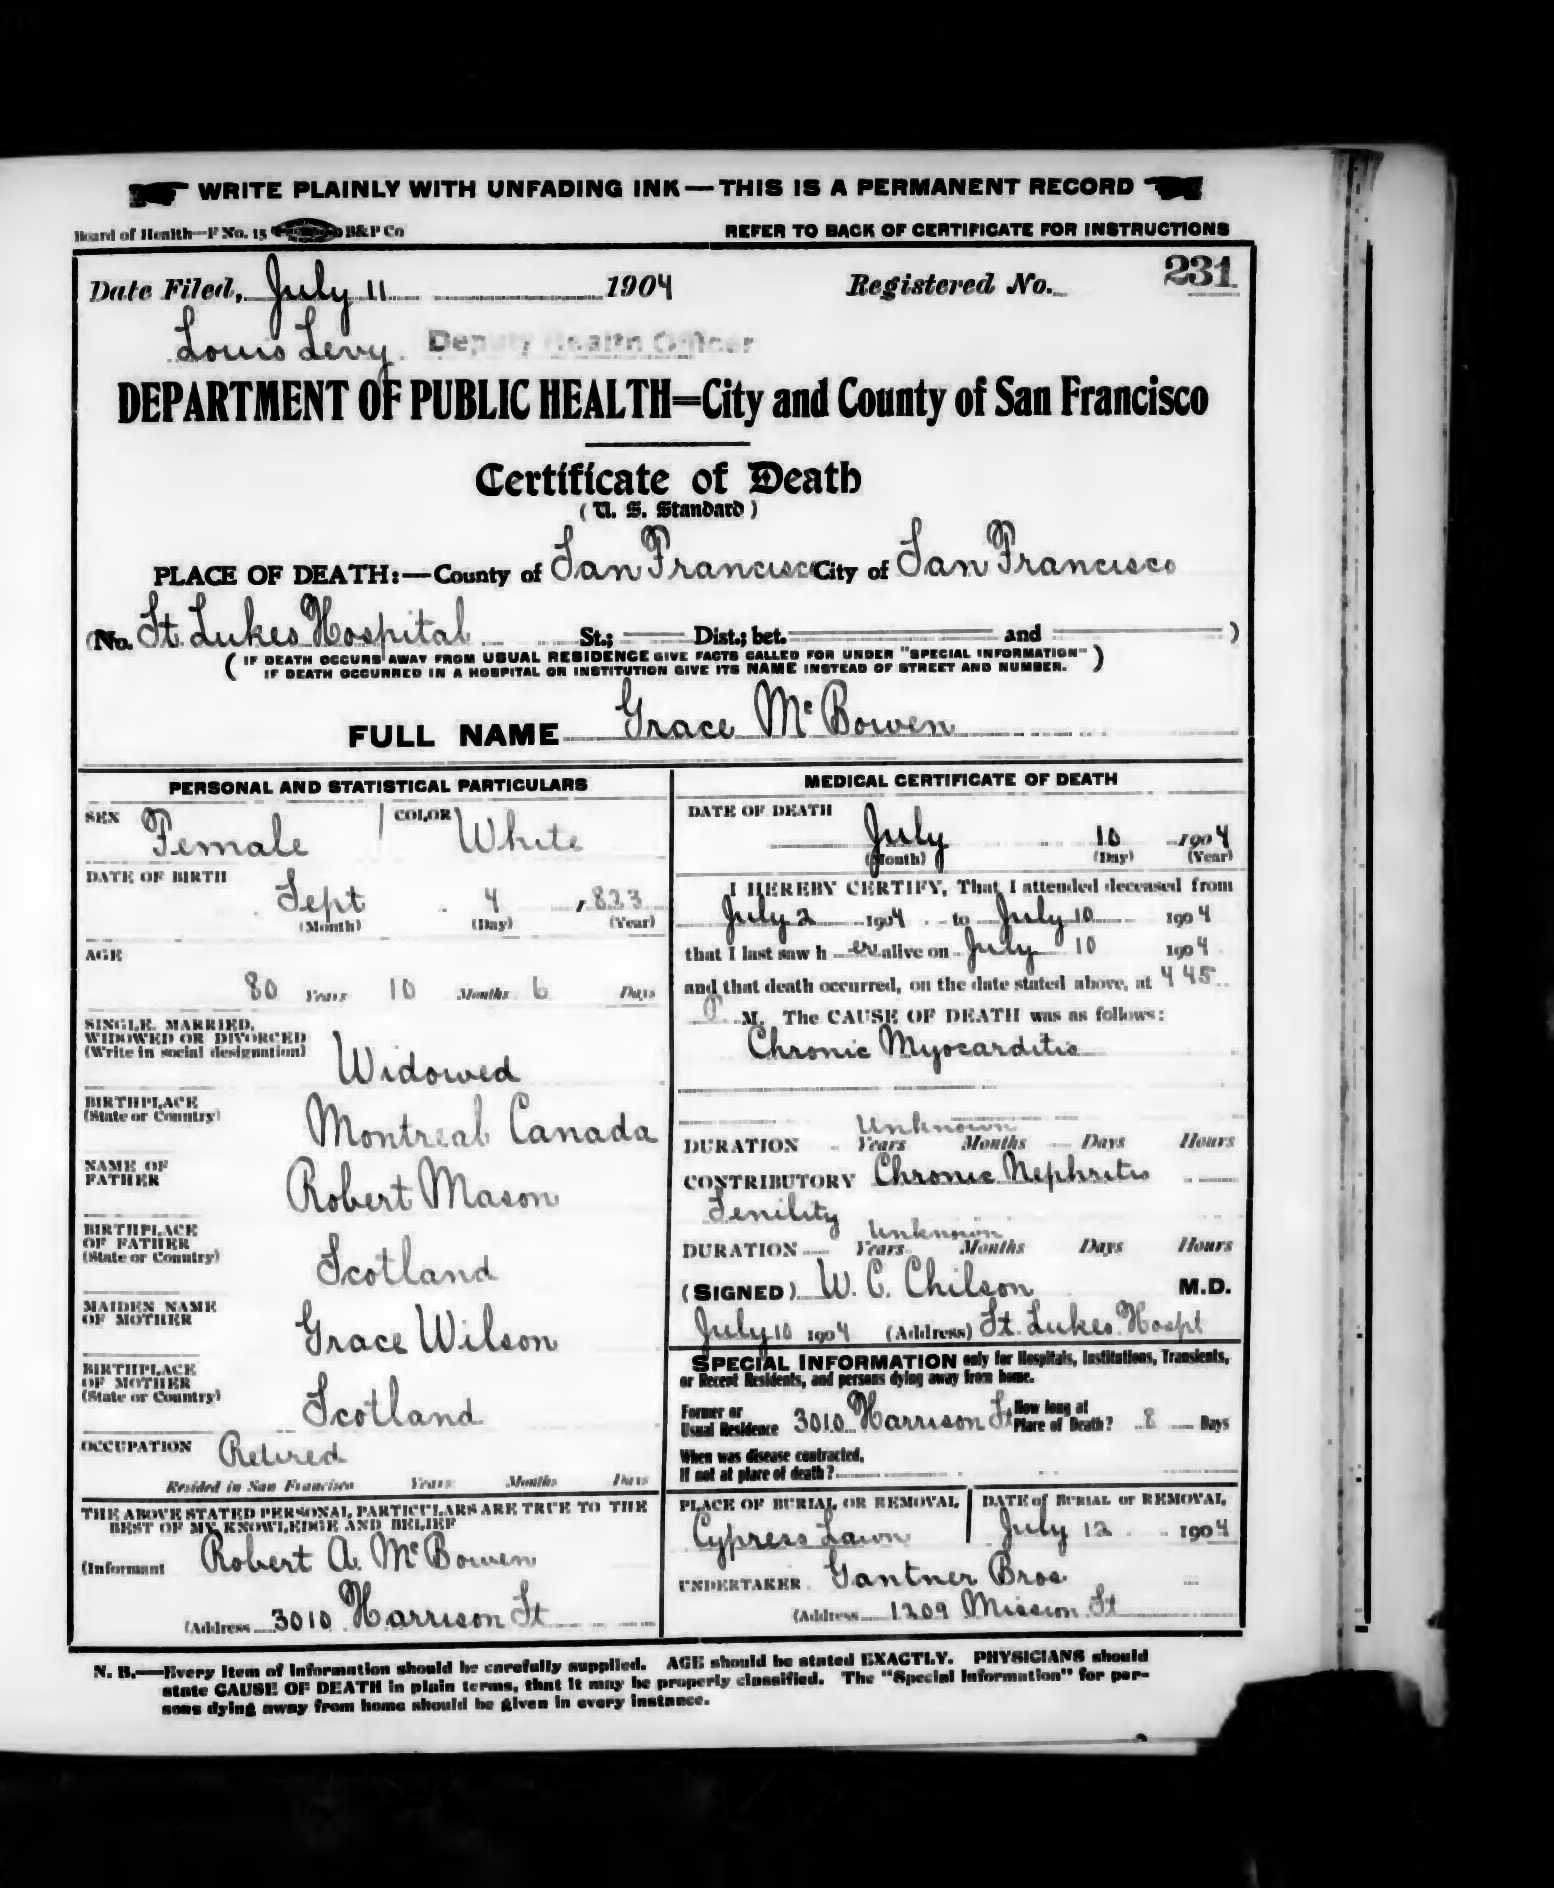 WRITE PLAINLY WITH UNFADING INK—THIS IS A PERMANENT RECORD
Board of Health—F No. 15 B&P Co
REFER TO BACK OF CERTIFICATE FOR INSTRUCTIONS
Date Filed, July 11 1904 Registered No. 231
Louis Levy. Deputy Health Officer
DEPARTMENT OF PUBLIC HEALTH=City and County of San Francisco
Certificate of Death
(U. S. Standard)
PLACE OF DEATH:—County of San Francisco City of San Francisco
(No. St. Lukes Hospital St.; Dist.; bet. and )
(IF DEATH OCCURS AWAY FROM USUAL RESIDENCE GIVE FACTS CALLED FOR UNDER "SPECIAL INFORMATION"
IF DEATH OCCURRED IN A HOSPITAL OR INSTITUTION GIVE ITS NAME INSTEAD OF STREET AND NUMBER.)
FULL NAME Grace McBowen
PERSONAL AND STATISTICAL PARTICULARS
SEX Female COLOR White
DATE OF BIRTH
Sept 4 , 823
(Month) (Day) (Year)
AGE
80 Years 10 Months 6 Days
SINGLE, MARRIED,
WIDOWED OR DIVORCED
(Write in social designation) Widowed
BIRTHPLACE
(State or Country) Montreal Canada
NAME OF
FATHER Robert Mason
BIRTHPLACE
OF FATHER
(State or Country) Scotland
MAIDEN NAME
OF MOTHER Grace Wilson
BIRTHPLACE
OF MOTHER
(State or Country) Scotland
OCCUPATION Retired
Resided in San Francisco Years Months Days
THE ABOVE STATED PERSONAL PARTICULARS ARE TRUE TO THE
BEST OF MY KNOWLEDGE AND BELIEF
(Informant Robert A. McBowen
(Address 3010 Harrison St
MEDICAL CERTIFICATE OF DEATH
DATE OF DEATH
July 10 1904
(Month) (Day) (Year)
I HEREBY CERTIFY, That I attended deceased from
July 2 1904 to July 10 1904
that I last saw h er alive on July 10 1904
and that death occurred, on the date stated above, at 4 45
P M. The CAUSE OF DEATH was as follows:
Chronic Myocarditis
Unknown
DURATION Years Months Days Hours
CONTRIBUTORY Chronic Nephritis
Senility
Unknown
DURATION Years Months Days Hours
(SIGNED) W. C. Chilson M.D.
July 10 1904 (Address) St. Lukes Hospt
SPECIAL INFORMATION only for Hospitals, Institutions, Transients,
or Recent Residents, and persons dying away from home.
Former or
Usual Residence 3010 Harrison St How long at
Place of Death? 8 Days
When was disease contracted,
If not at place of death?
PLACE OF BURIAL OR REMOVAL DATE of BURIAL or REMOVAL
Cypress Lawn July 12 1904
UNDERTAKER Gantner Bros
(Address 1209 Mission St
N. B.—Every item of information should be carefully supplied. AGE should be stated EXACTLY. PHYSICIANS should
state CAUSE OF DEATH in plain terms, that it may be properly classified. The "Special Information" for per-
sons dying away from home should be given in every instance.